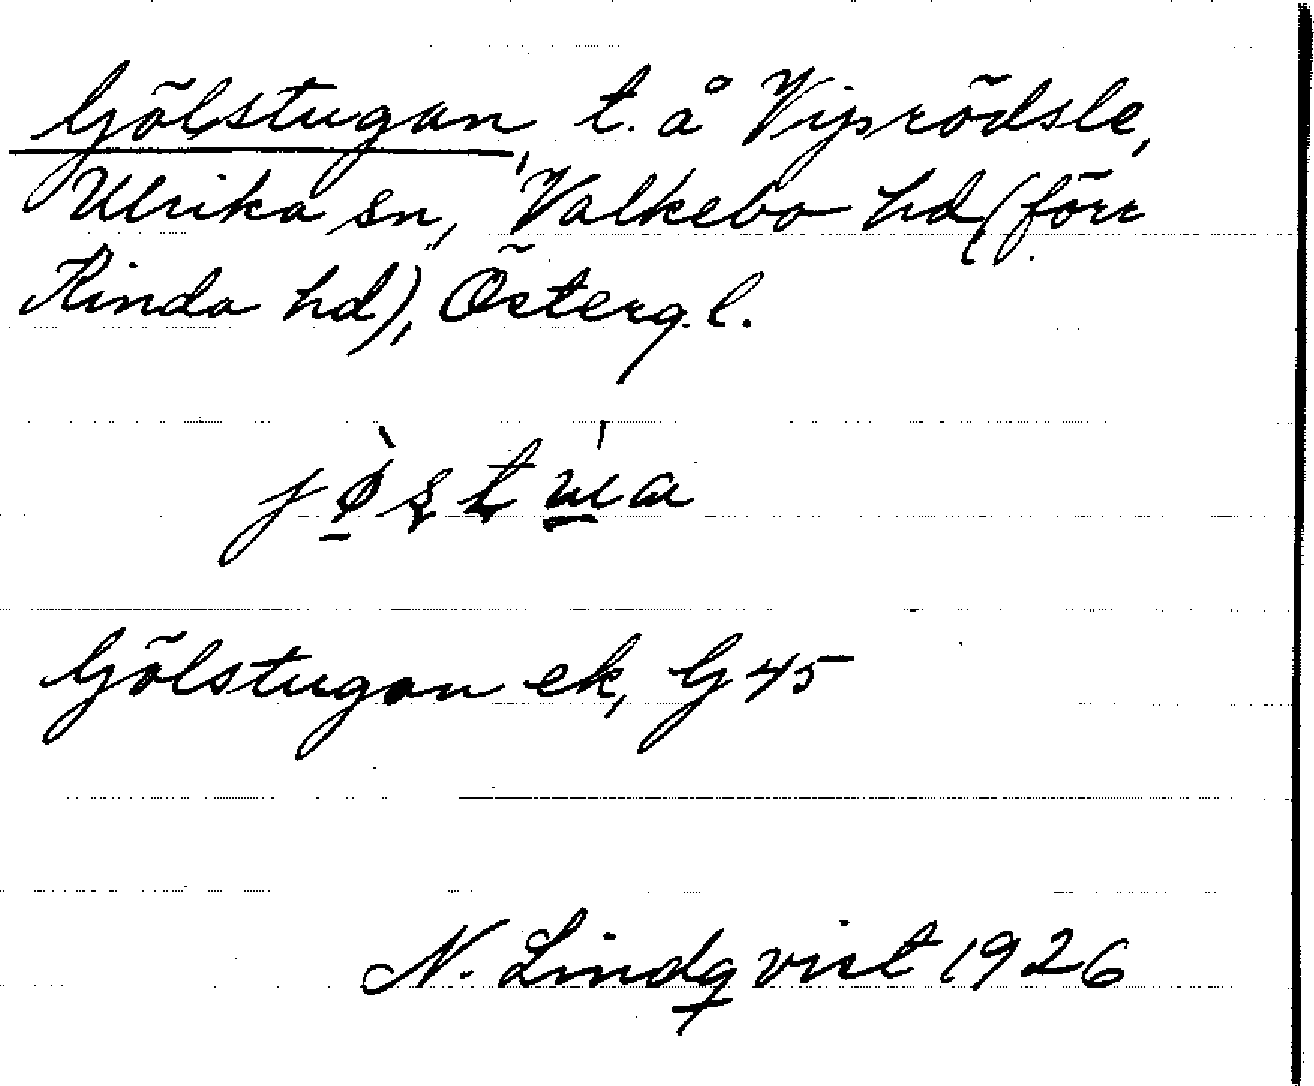 Gölstugan, t. å Viprödsle,
Ulrika sn, Valkebo hd (förr
Kinda hd), Österg. l.
Gölstugan ek, G 45
N. Lindqvist 1926